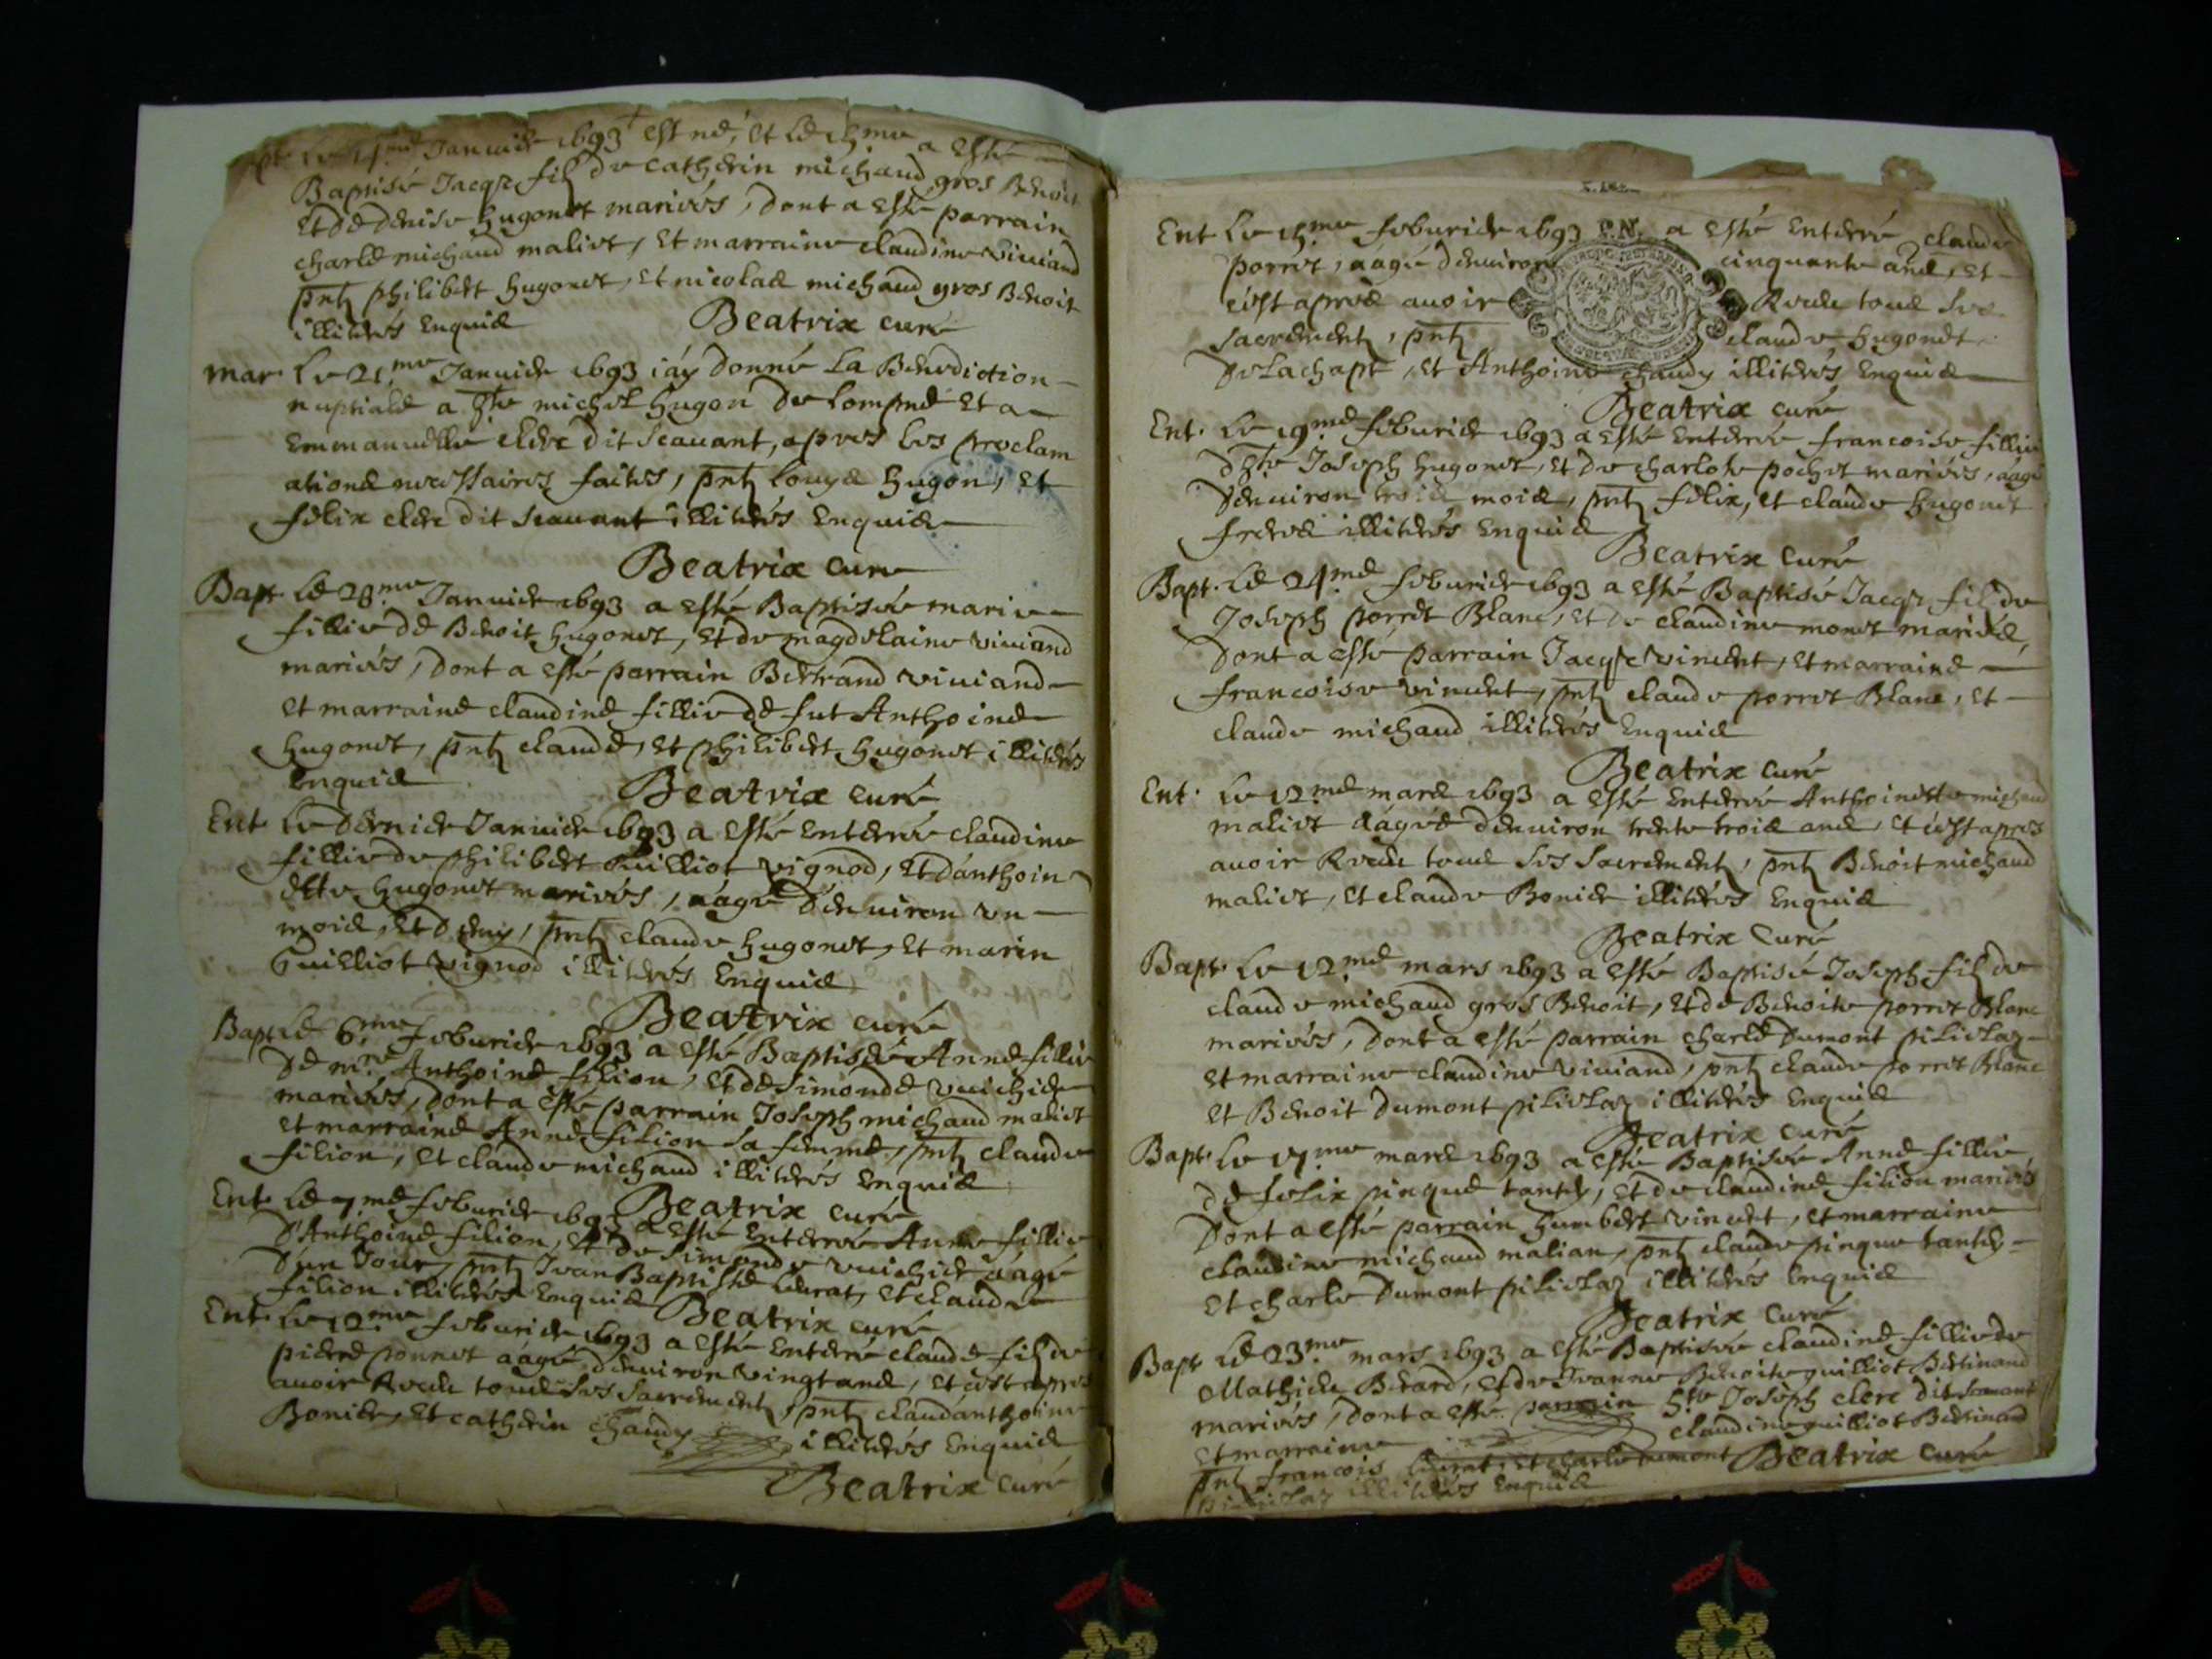 Bapt. Le 14.me Januier 1693 est né, et le 15.me a esté
Baptisé Jacq. filz de catherin michaud gros Benoit
et de denise hugonet mariés, dont a esté parrain
charle michaud maliet, et marraine claudine viuiand
pntz philibert hugonet, et nicolas michaud gros Benoit
illiterés Enquis Beatrix curé
Mar. Le 21.me Januier 1693 i'ay donné La Benediction
nuptiale a hte michel hugon de lompnes et a
Emmanuelle clerc dit scauant, apres les proclam
ations necessaires faites, pntz louys hugon, et
felix clerc dit scauant illiterés Enquis
Beatrix curé
Bapt. Le 28.me Januier 1693 a esté Baptisée marie
fillie de Benoit hugonet, et de magdelaine viuiand
mariés, dont a esté parrain Bertrand viuiand
et marraine claudine fillie de fut Anthoine
hugonet, pntz claude, et philibert hugonet illiterés
Enquis Beatrix curé
Ent. Le dernier Januier 1693 a esté Enterrée claudine
fillie de philibert Guilliot vignod, et d'anthoin
ette hugonet mariés, aagée d'enuiron vn
mois, et demy, pntz claude hugonet, et marin
Guilliot vignod illiterés Enquis
Beatrix curé
Bapt. Le 6.me feburier 1693 a esté Baptisée Anne fillie
de m.re Anthoine filion, et de Simonde vuichier
mariés, dont a esté parrain Joseph michaud maliet
et marraine Anne filion sa femme, pntz claude
filion, et claude michaud illiterés Enquis
Beatrix curé
Ent. Le 7.me feburier 1693 a esté Enterrée Anne fillie
d'Anthoine filion, et de Simonde vuichier aagée
d'un Jour, pntz Jean Baptiste et claude
filion illiterés Enquis Beatrix curé
Ent. Le 12.me feburier 1693 a esté Enterré claude filz de
pierre ponnet aagé d'enuiron vingt ans, et c'est apres
auoir Receu tous ses sacrementz, pntz claud'anthoine
Bonier, et catherin chaudy illiterés Enquis
Beatrix curé
Ent. Le 15.me feburier 1693 P.N. a esté Enterré claude
porret, aagé d'enuiron cinquante ans, et
c'est apres auoir Receu tous ses
sacrementz, pntz claude hugonet
de lachapt, et Anthoine chaudy illiterés Enquis
Beatrix curé
Ent. Le 19.me feburier 1693 a esté Enterrée francoise fillie
d'hte Joseph hugonet, et de charlote pochet mariés, aagée
d'enuiron trois mois, pntz felix, et claude hugonet
freres illiterés Enquis
Beatrix curé
Bapt. Le 24.me feburier 1693 a esté Baptisé Jacq. filz de
Joseph porret Blanc, et de claudine monet mariés,
dont a esté parrain Jacq. vincent, et marraine
francoise vincent, pntz claude porret Blanc, et
claude michaud illiterés Enquis
Beatrix curé
Ent. Le 12.me mars 1693 a esté Enterrée Anthoinette michaud
maliet aagée d'enuiron trente trois ans, et c'est apres
auoir Receu tous ses sacrementz, pntz Benoit michaud
maliet, et claude Bonier illiterés Enquis
Beatrix Curé
Bapt. Le 12.me mars 1693 a esté Baptisé Joseph filz de
claude michaud gros Benoit, et de Benoite porret Blanc
mariés, dont a esté parrain charle Dumont pilielaz
et marraine claudine viuiand, pntz claude porret Blanc
et Benoit Dumont pilielaz illiterés Enquis
Beatrix curé
Bapt. Le 17.me mars 1693 a esté Baptisée Anne fillie
de felix pinque tantey, et de claudine filion mariés
dont a esté parrain humbert vincent, et marraine
claudine michaud malian, pntz claude pinque tantey
et charle Dumont pilielaz illiterés Enquis
Beatrix curé
Bapt. Le 23.me mars 1693 a esté Baptisée claudine fillie de
Mathieu Berard, et de Jeanne Benoite guilliot Bertinand
mariés, dont a esté parrain hte Joseph clerc dit scauant
et marraine claudine guilliot Bertinand
pntz francois et charle Dumont Beatrix curé
pilielaz illiterés Enquis